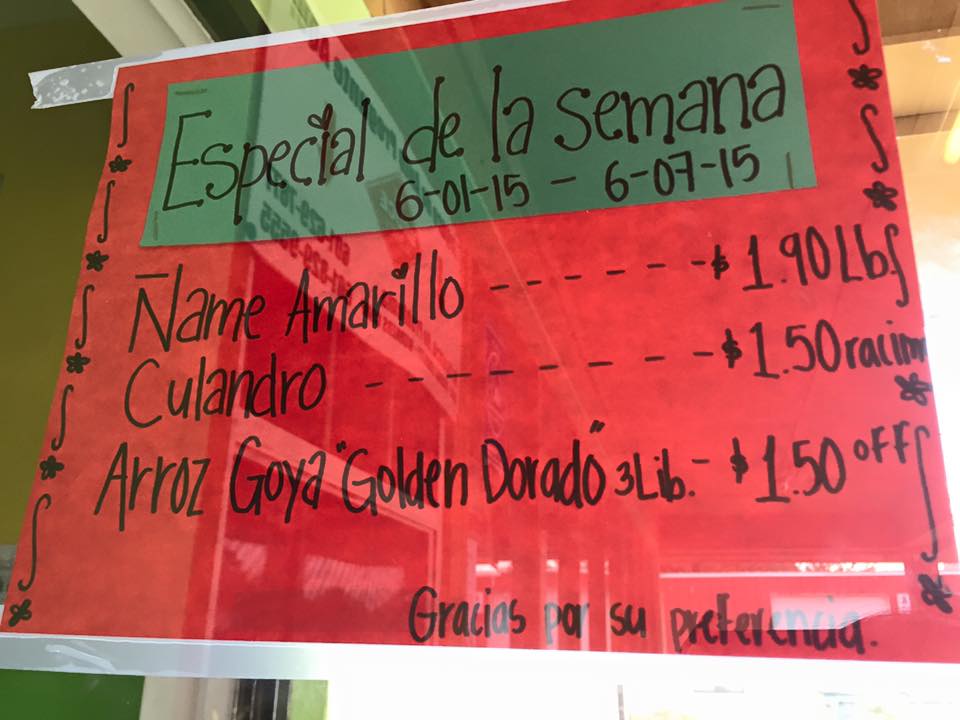 Especial de la semana
6-01-15 - 6-07-15
Ñame Amarillo - - - - - - $ 1.90 Lbs
Culandro - - - - - - - - $ 1.50 racim
Arroz Goya "Golden Dorado" 3 Lib. - $ 1.50 off
Gracias por su preferencia.